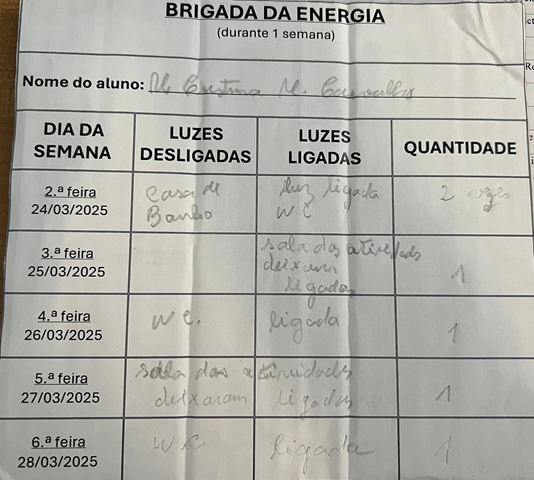 BRIGADA DA ENERGIA
(durante 1 semana)
Nome do aluno: Mª Cristina M. Carvalho
DIA DA SEMANA
LUZES DESLIGADAS
LUZES LIGADAS
QUANTIDADE
2.ª feira
24/03/2025
casa de
Banho
luz ligada
WC
2 vezes
3.ª feira
25/03/2025
sala das atividads
deixaram
ligadas
1
4.ª feira
26/03/2025
WC.
ligada
1
5.ª feira
27/03/2025
sala das atividades
deixaram ligadas
1
6.ª feira
28/03/2025
WC
ligada
1